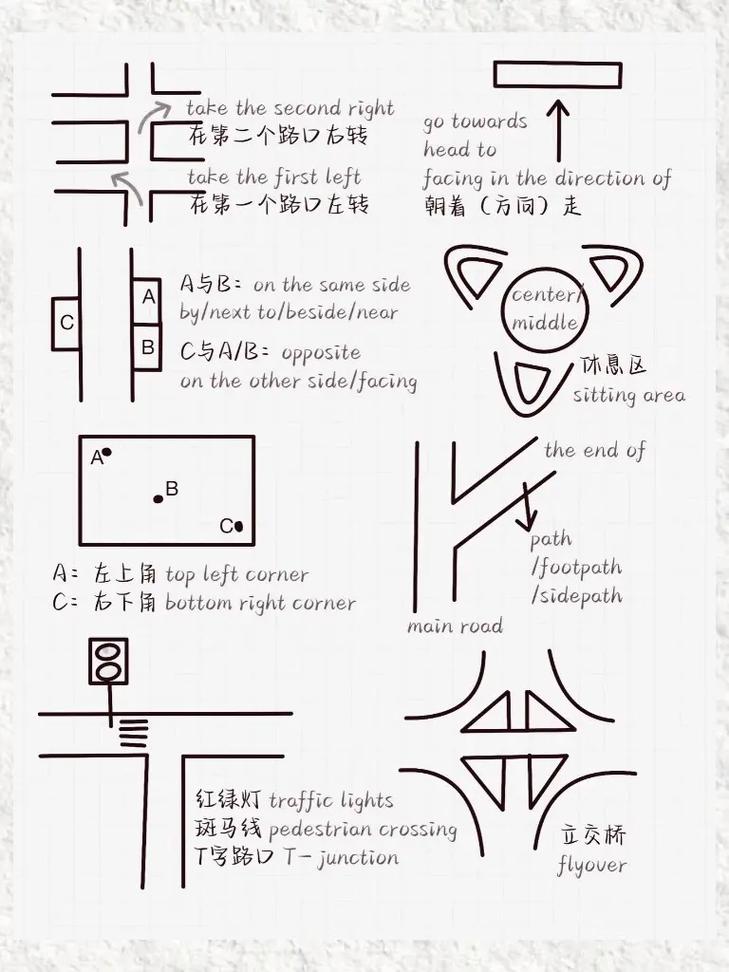 take the second right
在第二个路口右转
take the first left
在第一个路口左转
go towards
head to
facing in the direction of
朝着（方向）走
C
A
B
A与B：on the same side
by/next to/beside/near
C与A/B：opposite
on the other side/facing
center/
middle
休息区
sitting area
A
B
C
A：左上角 top left corner
C：右下角 bottom right corner
the end of
path
/footpath
/sidepath
main road
红绿灯 traffic lights
斑马线 pedestrian crossing
T字路口 T-junction
立交桥
flyover